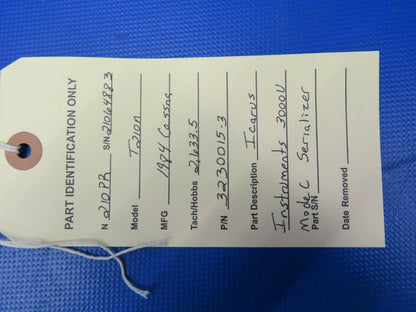 PART IDENTIFICATION ONLY
N 210PR S/N 21064883
Model T210N
MFG 1984 Cessna
Tach/Hobbs 2,633.5
P/N 3230015-3
Part Description Icarus
Instruments 3000U
Mode C Serializer
Part S/N
Date Removed